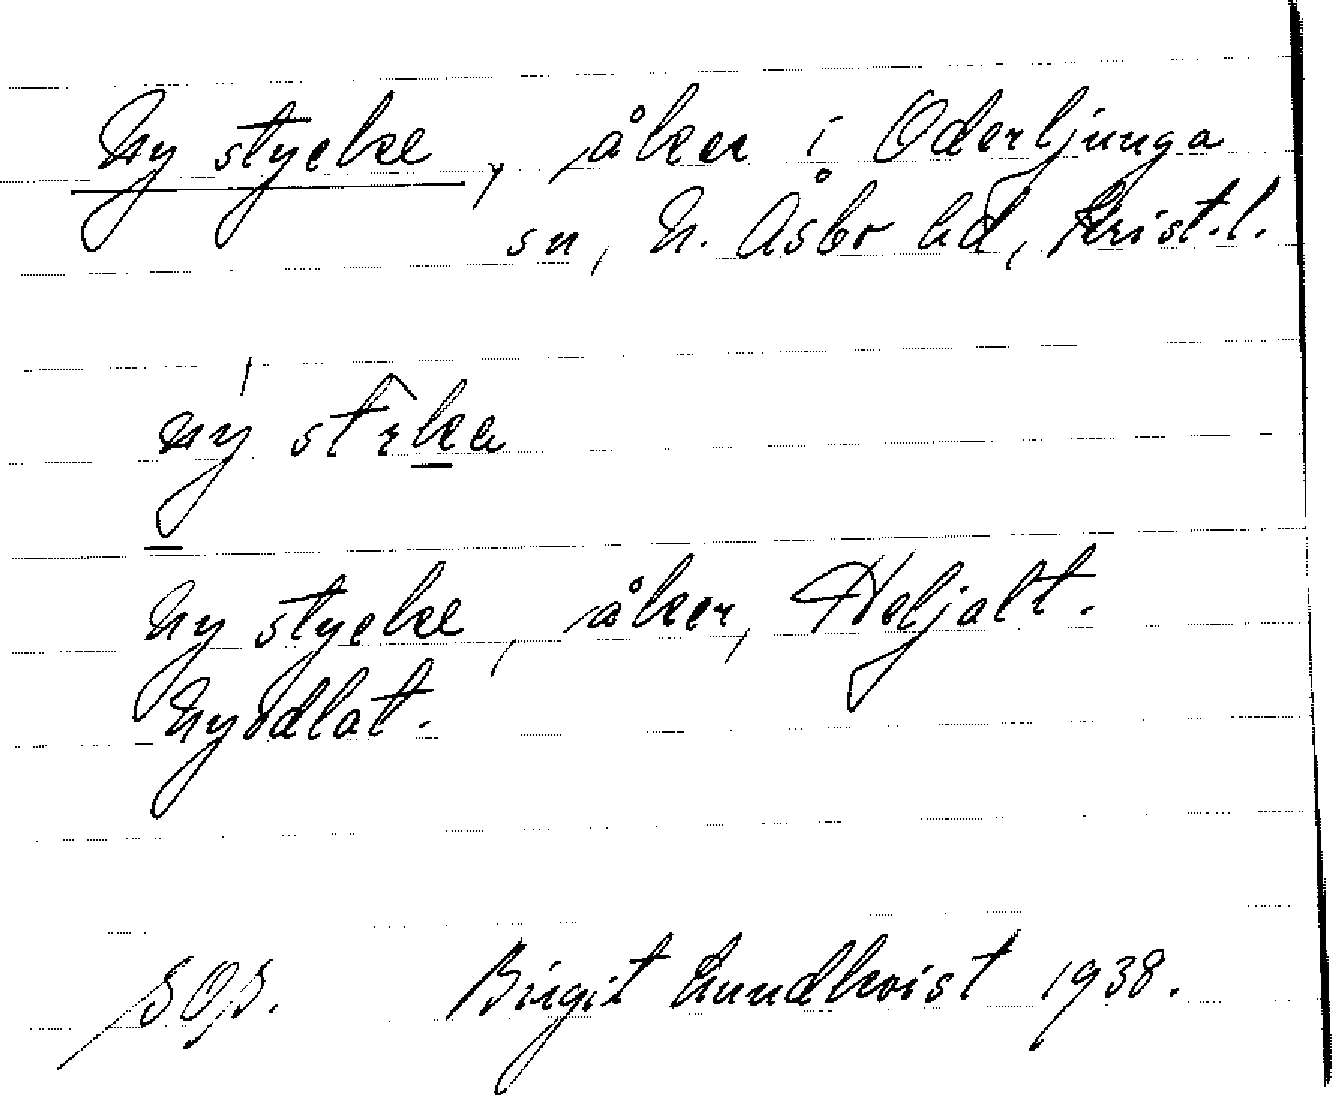 Ny stycke, åker i Oderljunga
sn, N. Åsbo hd, Krist. l.
Ny stycke, åker, Heljalt.
Nyodlat.
Birgit Lundkvist 1938.